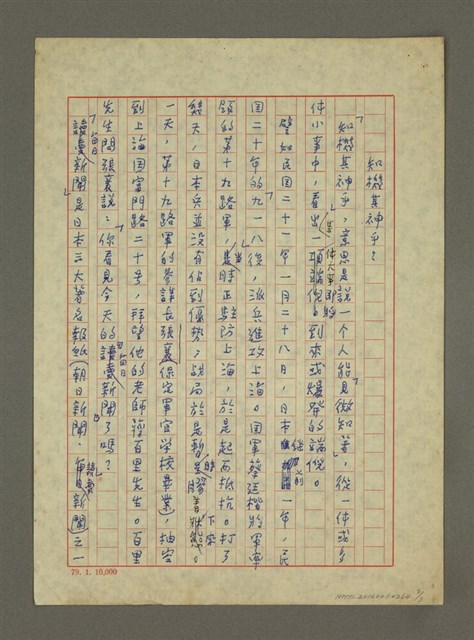 知機其神乎？
「知機其神乎」，意思是說一個人能「見微知著」，從一件或多
件小事中，看出一項是件大事即將到來或爆發的端倪。
譬如民國二十一年一月二十八日，日本繼前一年，民
國二十年的「九一八」後，派兵進攻上海。國軍蔡廷楷將軍率
領的第十九路軍，當時正駐防上海，於是起而抵抗。打了
幾天，日本兵並沒有佔到優勢，戰局於是暫時膠著狀態。
一天，第十九路軍的參謀長張襄（保定軍官學校畢業），抽空
到上海國富門路二十號，拜望他的老師蔣百里先生。百里
先生問張襄說：「你看見今天的每日新聞了嗎？」
「每日新聞」是日本三大著名報紙（朝日新聞、讀賣新聞）之一
79. 1. 10,000